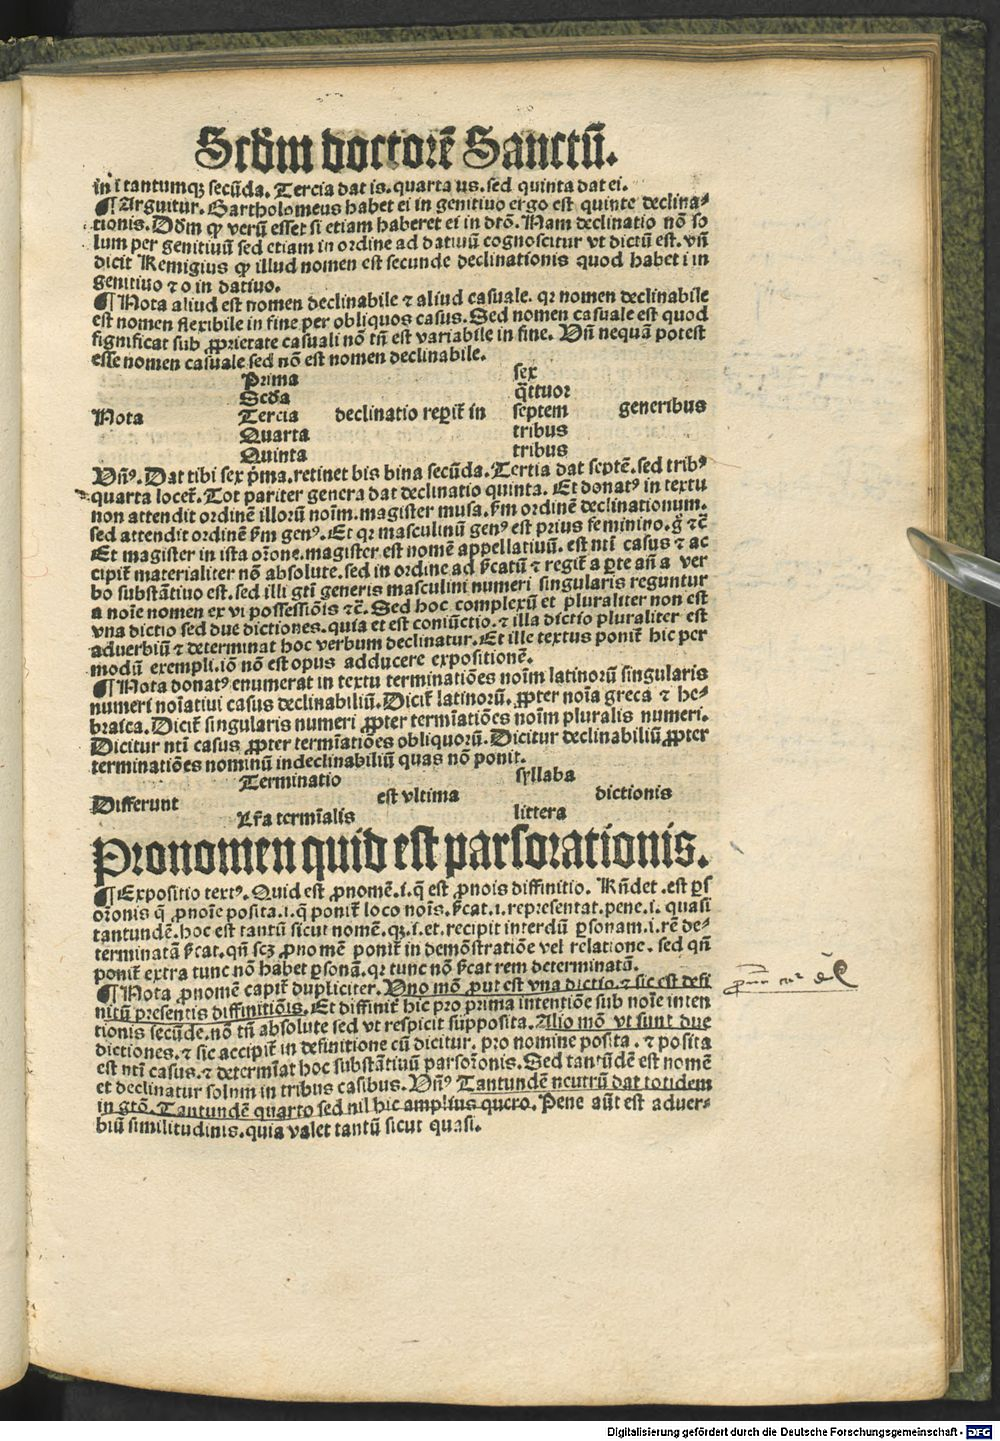 Scdm doctorē Sanctū.
in i tantumqꝫ secūda. Tercia dat is. quarta us. sed quinta dat ei.
¶ Arguitur. Bartholomeus habet ei in genitiuo ergo est quinte declina⸗
tionis. Ddm ꝙ verū esset si etiam haberet ei in dtō. Nam declinatio nō so
lum per genitiuū sed etiam in ordine ad datiuū cognoscitur vt dictū est. vñ
dicit Remigius ꝙ illud nomen est secunde declinationis quod habet i in
genitiuo ⁊ o in datiuo.
¶ Nota aliud est nomen declinabile ⁊ aliud casuale. qꝛ nomen declinabile
est nomen flexibile in fine per obliquos casus. Sed nomen casuale est quod
significat sub ꝓprietate casuali nō tñ est variabile in fine. Vñ nequā potest
esse nomen casuale sed nō est nomen declinabile.
Prima sex
Scda q̄ttuor
Nota Tercia declinatio reꝑit̄ in septem generibus
Quarta tribus
Quinta tribus
Vñꝰ. Dat tibi sex p̄ma. retinet bis bina secūda. Tertia dat septē. sed tribꝰ
quarta locet̄. Tot pariter genera dat declinatio quinta. Et donatꝰ in textu
non attendit ordinē illorū noīm. magister musa. ẜm ordinē declinationum.
sed attendit ordinē ẜm genꝰ. Et qꝛ masculinū genꝰ est prius feminino. g̊ ⁊c̄
Et magister in ista oꝛone. magister est nomē appellatiuū. est nti casus ⁊ ac
cipit̄ materialiter nō absolute. sed in ordine ad ẜcatū ⁊ regit̄ a ꝑte añ a ver
bo substātiuo est. sed illi gti generis masculini numeri singularis reguntur
a noīe nomen ex vi possessiōis ⁊c̄. Sed hoc complexū et pluraliter non est
vna dictio sed due dictiones. quia et est coniūctio. ⁊ illa dictio pluraliter est
aduerbiū ⁊ determinat hoc verbum declinatur. Et ille textus ponit̄ hic per
modū exempli. iō nō est opus adducere expositionē.
¶ Nota donatꝰ enumerat in textu terminatiōes noīm latinorū singularis
numeri noīatiui casus declinabiliū. Dicit̄ latinorū. ꝓpter noīa greca ⁊ he⸗
braica. Dicit̄ singularis numeri ꝓpter termīatiōes noīm pluralis numeri.
Dicitur nti casus ꝓpter termīatiōes obliquorū. Dicitur declinabiliū ꝓpter
terminatiōes nominū indeclinabiliū quas nō ponit.
Terminatio syllaba
Differunt est vltima dictionis
Lr̄a termīalis littera
Pronomen quid est pars orationis.
¶ Expositio textꝰ. Quid est ꝓnomē. i. q̄ est ꝓnoīs diffinitio. Rñdet. est ꝑs
oꝛonis q̄ ꝓnoīe posita. i. q̄ ponit̄ loco noīs. ẜcat. i. representat. pene. i. quasi
tantundē. hoc est tantū sicut nomē. qꝫ. i. et. recipit interdū ꝑsonam. i. rē de⸗
terminatā ẜcat. qñ scꝫ ꝓnomē ponit̄ in demōstratiōe vel relatione. sed qñ
ponit̄ extra tunc nō habet ꝑsonā. qꝛ tunc nō ẜcat rem determinatā.
¶ Nota ꝓnomē capit̄ dupliciter. Vno mō ꝓut est vna dictio. ⁊ sic est defi
nitū presentis diffinitiōis. Et diffinit̄ hic pro prima intentiōe sub noīe inten
tionis secūde. nō tñ absolute sed vt respicit supposita. Alio mō vt sunt due
dictiones. ⁊ sic accipit̄ in definitione cū dicitur. pro nomine posita. ⁊ posita
est nti casus. ⁊ determīat hoc substātiuū pars oꝛonis. Sed tantūdē est nomē
et declinatur solum in tribus casibus. Vñꝰ Tantundē neutrū dat totidem
in gtō. Tantundē quarto sed nil hic amplius quero. Pene aūt est aduer⸗
biū similitudinis. quia valet tantū sicut quasi.
Digitalisierung gefördert durch die Deutsche Forschungsgemeinschaft - DFG